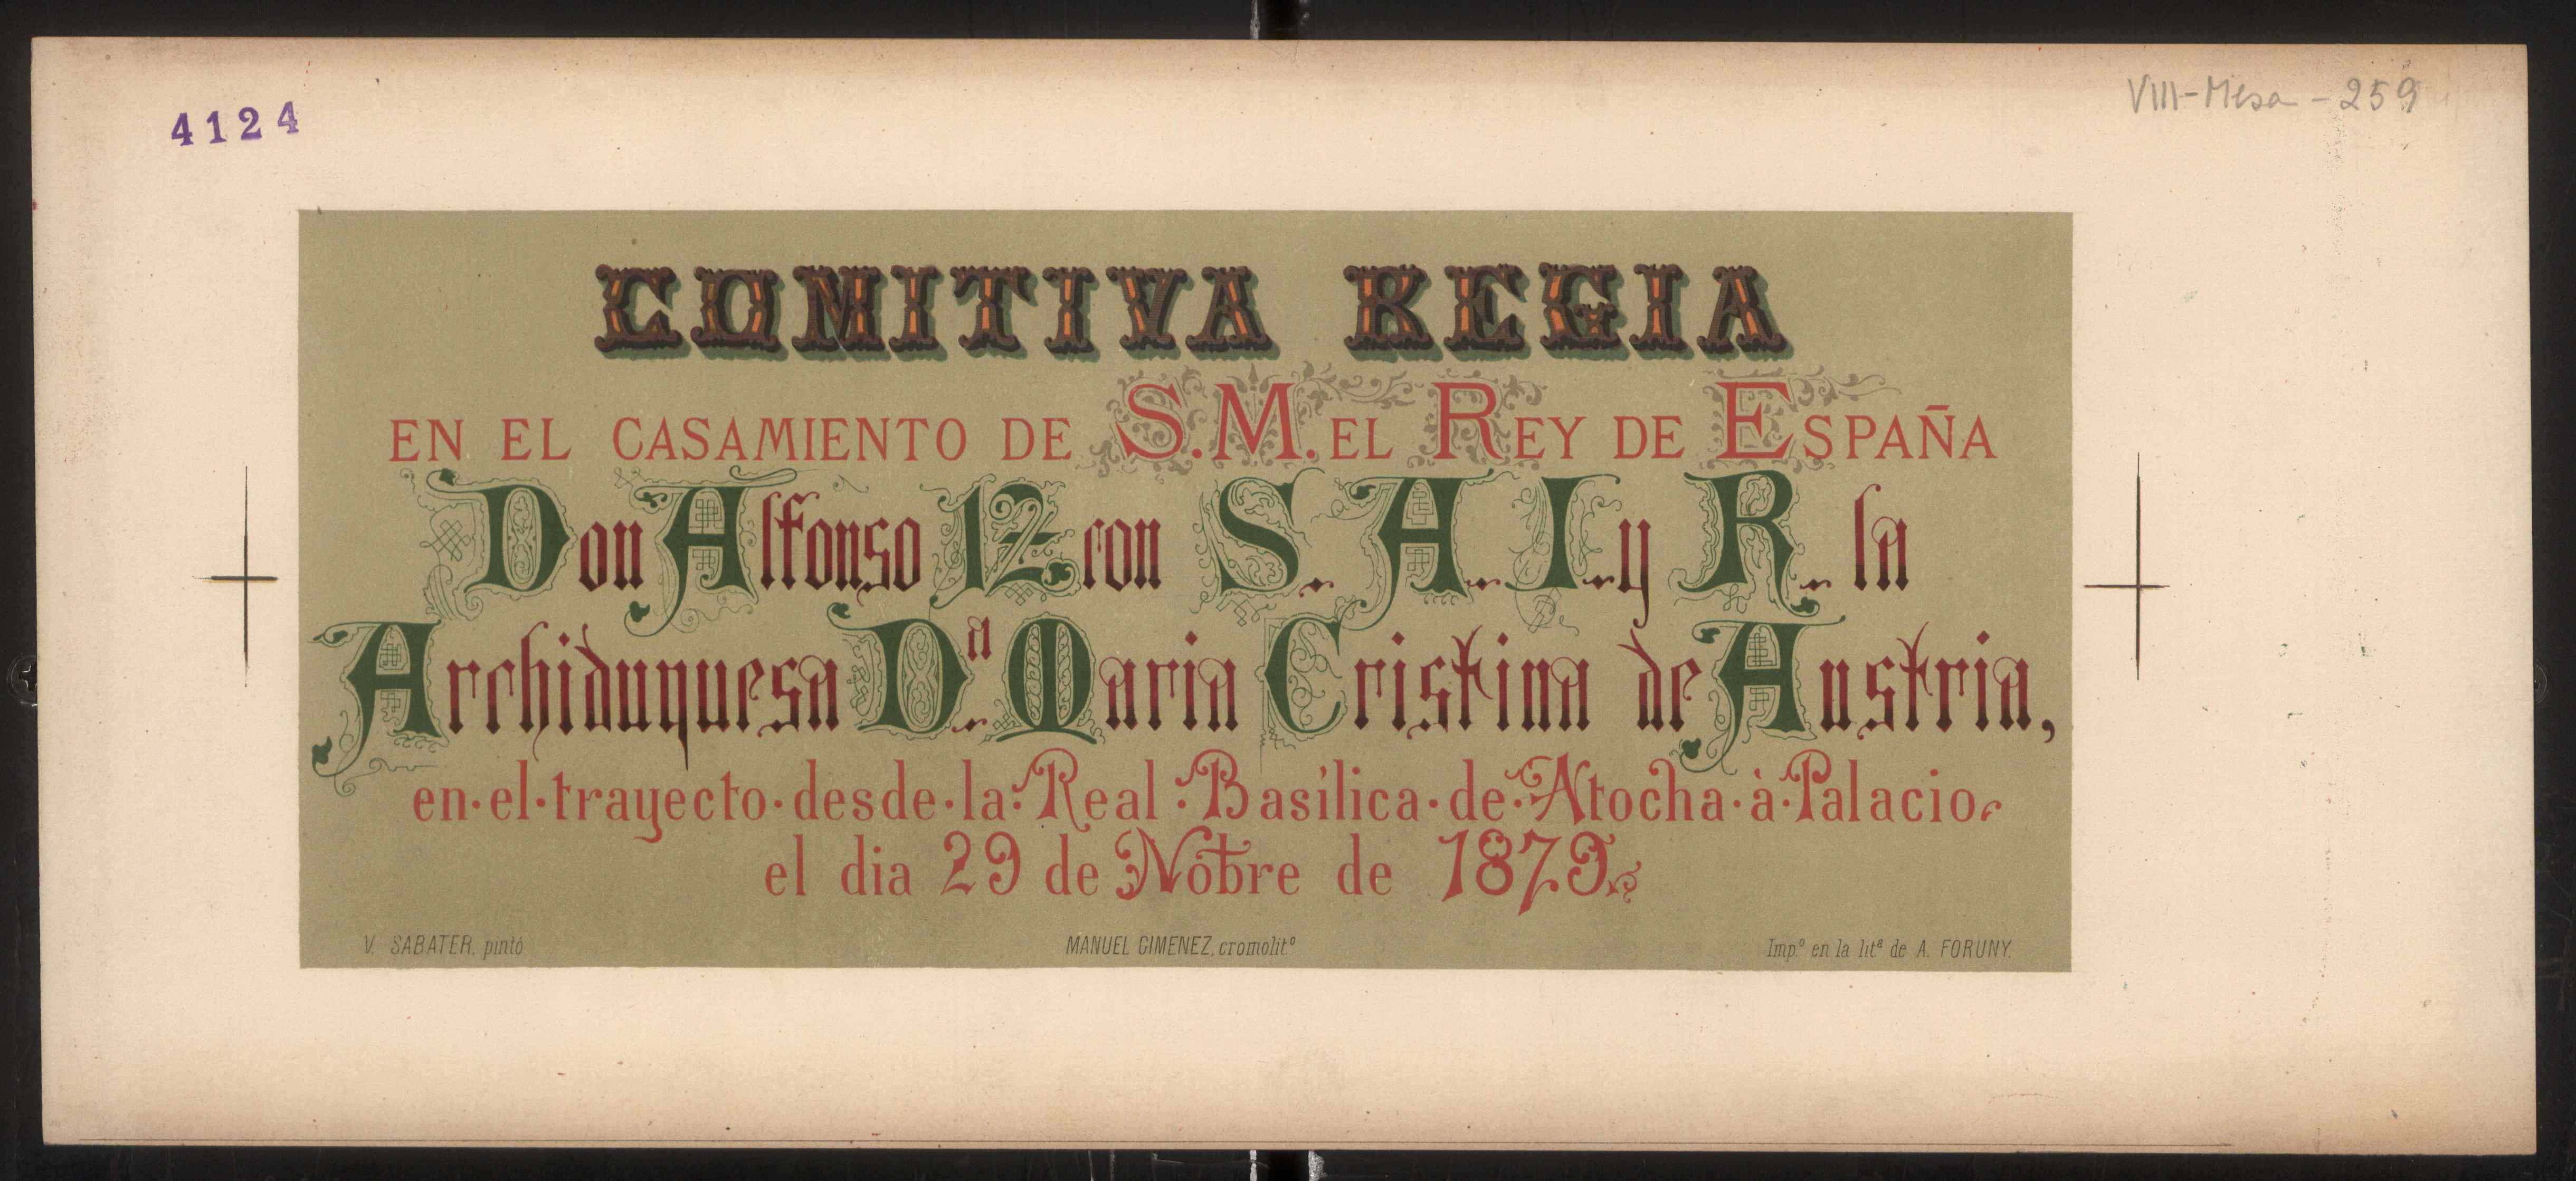 4124
VIII-Mesa-259
COMITIVA REGIA
EN EL CASAMIENTO DE S.M. EL REY DE ESPAÑA
Don Alfonso 12 con S. A. I. y R. la
Archiduquesa D.ª Maria Cristina de Austria,
en·el·trayecto·desde·la·Real·Basílica·de·Atocha·à·Palacio
el dia 29 de Nobre de 1879.
V. SABATER, pintó
MANUEL GIMENEZ, cromolit.º
Imp.º en la lit.ª de A. FORUNY.